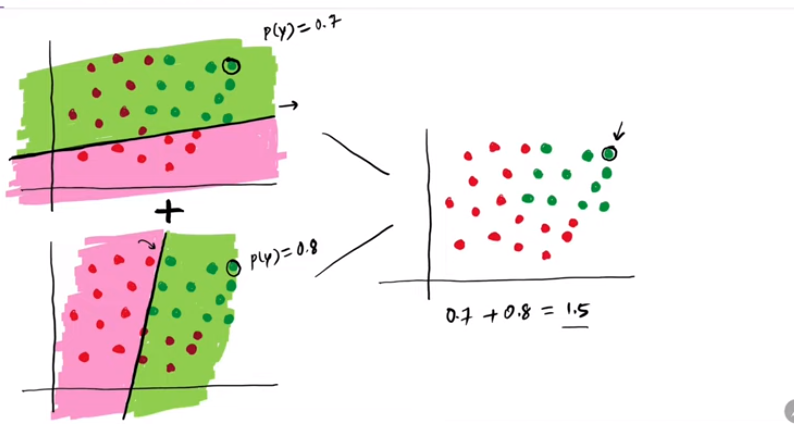 P(y) = 0.7
+
P(y) = 0.8
0.7 + 0.8 = 1.5